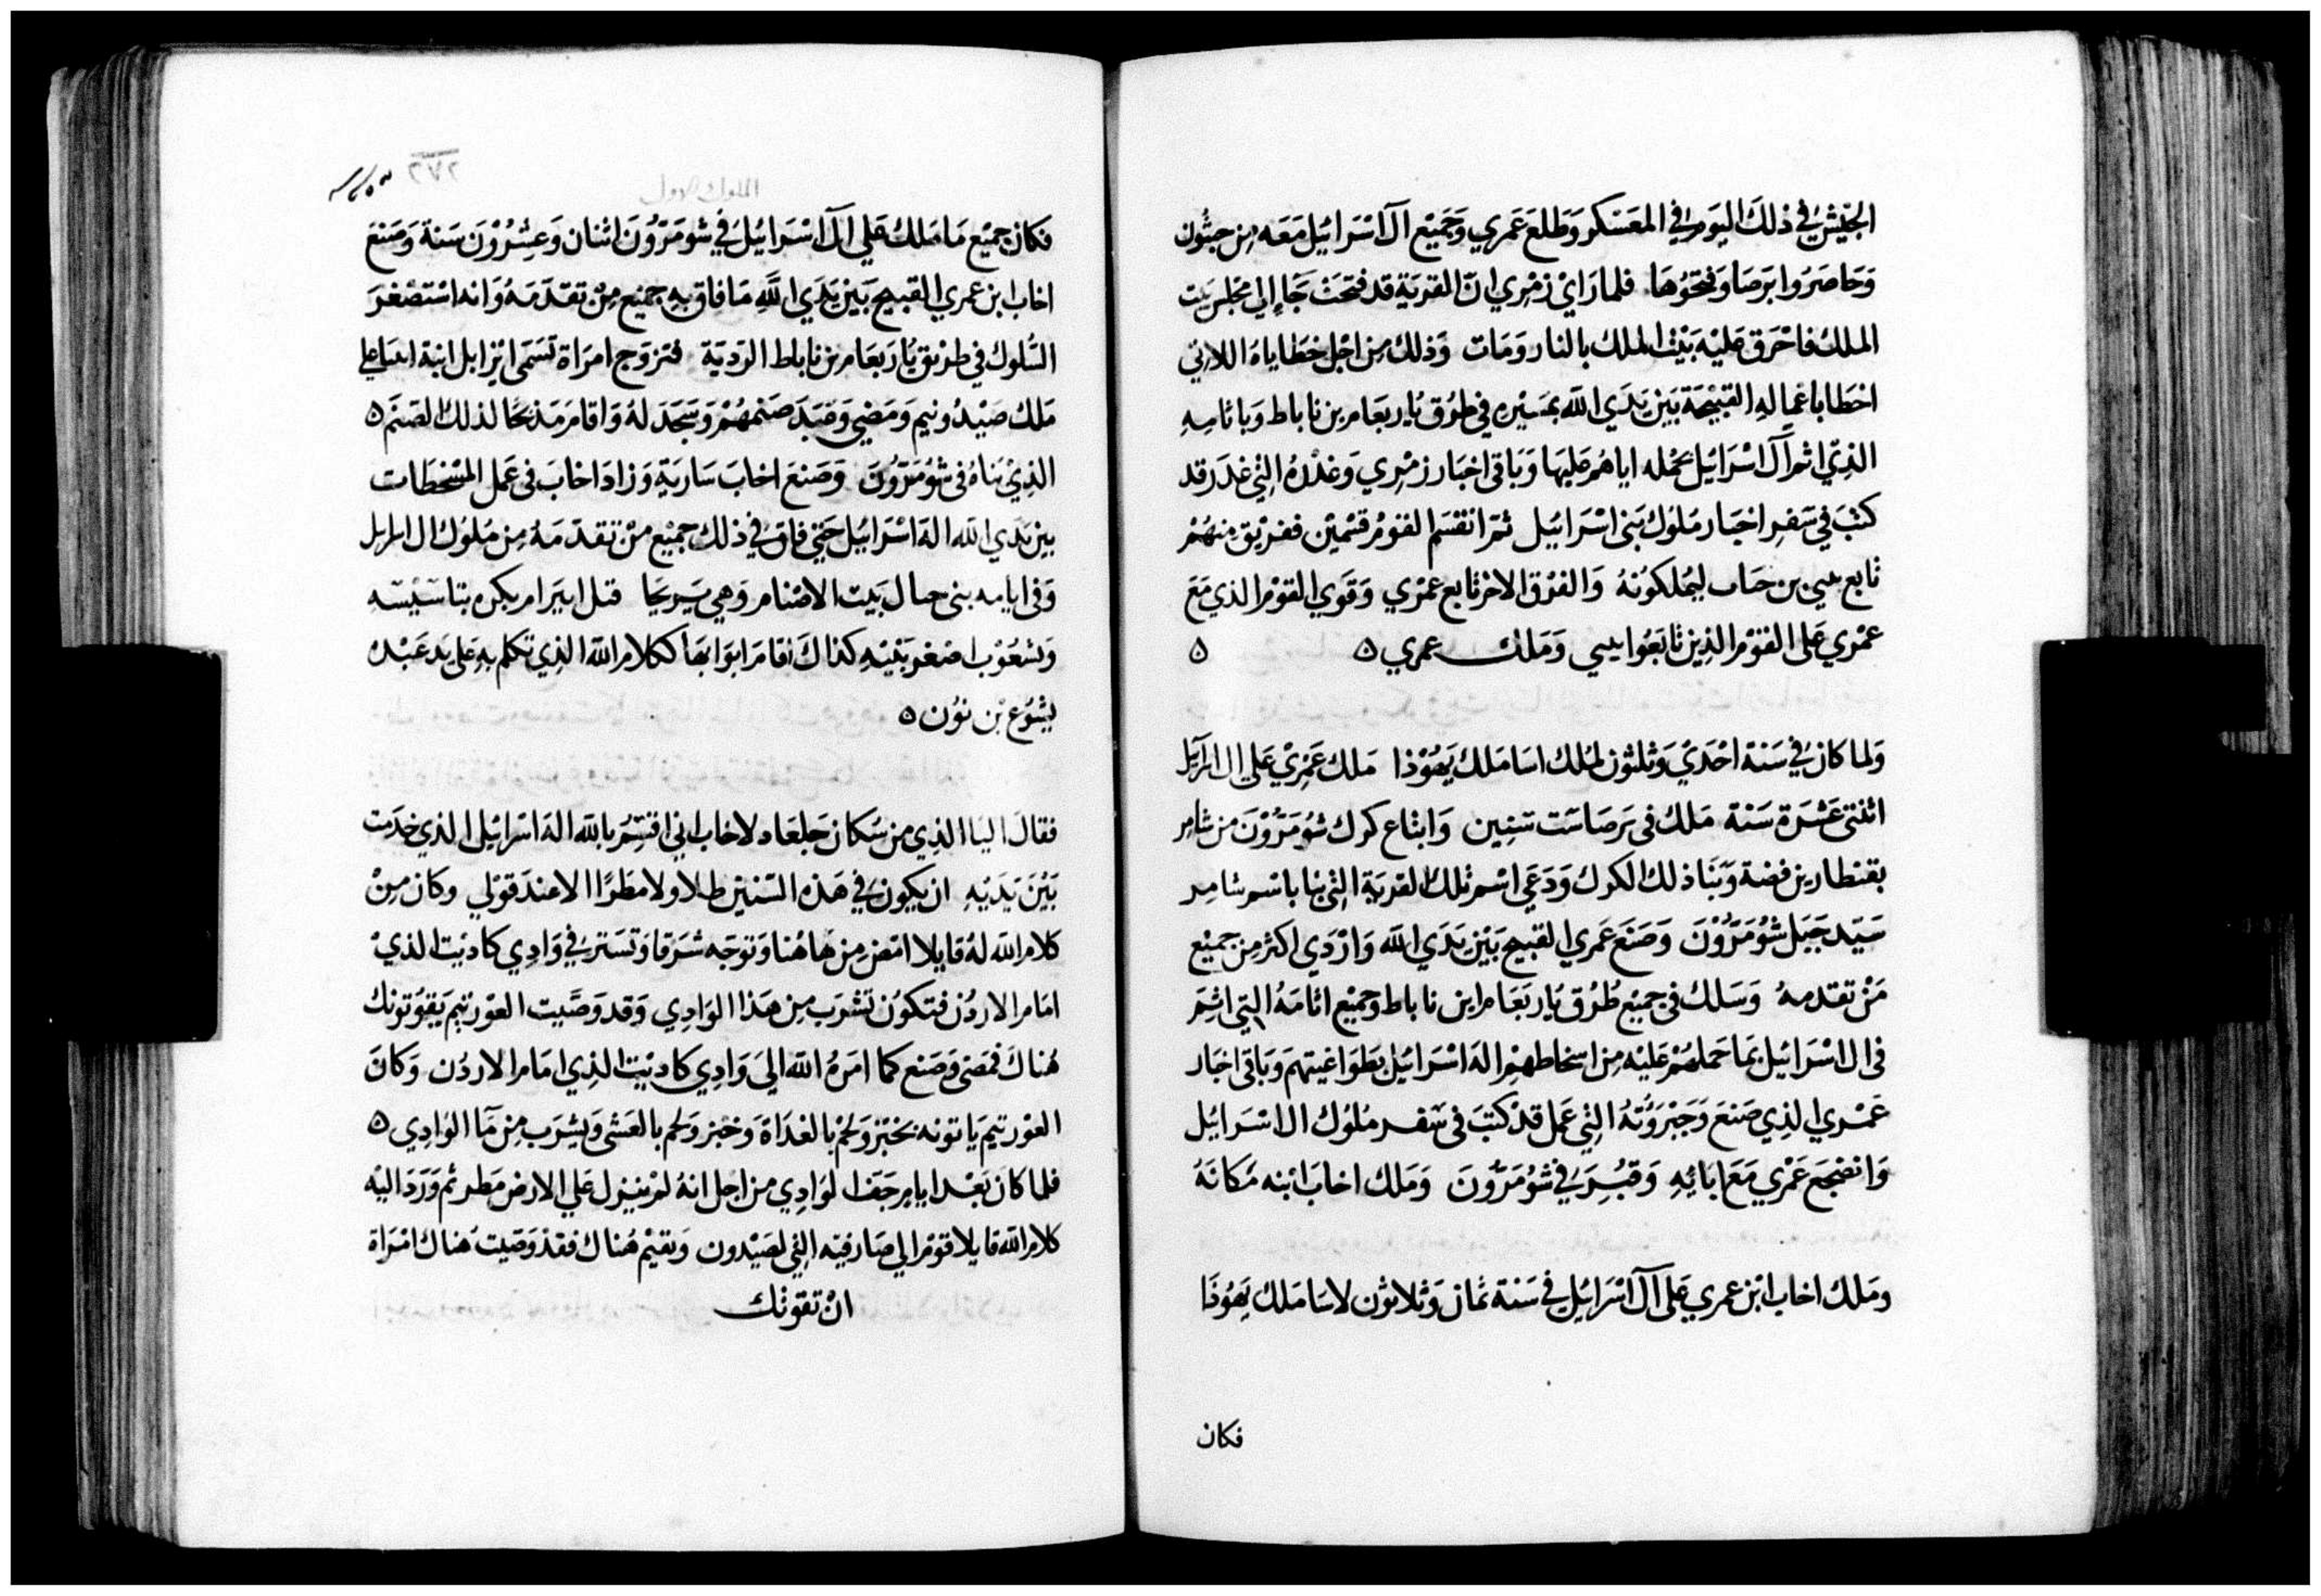 الجَيْش في ذلكَ اليَوم في المعَسْكر وَطلعَ عَمري وَجَميْع ال اسْرَائيل مَعَه مِن جثُون
وَحَاصَرُوا بَرصَا وَفتحَوُهَا فلما رَايْ زمْرِي انّ القريَة قد فتحَتْ جَا إلي مجْلس بَيت
الملك فاحْرَق عَليْه بَيْت الملك بالنار وَمَات وَذلك مِن اجْل خطَاياهُ اللاتي
اخطَا باعمالهِ القبيْحَة بَيْن يَدَي الله بمَسْيره في طرُق يُاربعَام بن ناباط وَباثامِهِ
الذِيّ اثم آل اسْرَائيل بحُمله اياهُم عَليهَا وَبَاقي اخبَار زمْرِي وَغدْرهُ التِي غدَر قد
كتبَ في سَفرِ اخبَار مُلوُك بَني اسْرَائيل ثمّ انقسَم القوْمُ قسْميْن ففرْيق منهُمْ
تابع يبي بن حَاب ليُملكوُنهُ وَالفرْق الاخْر تابع عمْري وَقوَي القوْم الذي مَعَ
عمْري عَلى القوْم الذِين تابَعُوا يبي وَمَلك عمري ٥ ٥
وَلما كانَ في سَنة احْدَيْ وَثلثون لملك اسَا مَلك يَهوُذا مَلك عَمْرِيْ عَلي ال اسرآيل
اثنتي عَشْرَة سَنة مَلك في بَرصَا سَت سَنِين وَابتاع كرك شُومَرّوُنَ من شامِر
بقنطارين فضة وَبَنا ذلك الكرك وَدَعَي اسْم تلك القريَة التِي بنا باسْم شامِر
سَيّد جَبَل شُومَرّوُنَ وَصَنعَ عَمري القبيح بَيْن يَدَي الله وَارْدَي اكثر مِن جميْع
مَنْ تقدمهُ وَسَلك في جميْع طُرُق يُاربَعَام ابن ناباط وجميْع اثامَهُ التِي اثِمَ
في ال اسْرَائيل بمَا حَملهُمْ عَليْه مِن اسخاطهمْ اله اسْرَائيل بطَوَاغيتهمْ وَبَاقي اخبَار
عَمْري الذِي صَنعَ وَجَبْرَوُتهُ التِي عَمل قدْ كتبَ في سَفر مُلوُك ال اسْرَائيل
وَانضجَعَ عَمْري مَعَ ابَائِهِ وَقبُرَ في شوُمَرّوُنَ وَمَلك اخابَ ابْنه مَكانَهُ
ومَلك اخاب ابْن عمري عَلى آل اسْرَائيل في سَنة ثمان وَثلاثون لاسَا مَلك يَهُوذَا
فكان
٢٧٦
الملوك الاول
فكان جميْع مَا مَلكُ عَلي آل اسْرَائيل في شومَرّوُنَ اثنان وَعشِرْوُنَ سَنة وَصَنعَ
اخاب ابن عمري القبيح بَيْن يَدَي اللهِ مَا فاق بهِ جميْع مِنْ تقدّمَهُ وَانه اسْتَصْغرَ
السُّلوك في طرْيق يُارَبعَام بن ناباط الرَديَة فتزوَج امرَاة تسَمّى ايْزابل ابنة اتبَاعلي
مَلك صَيْدُونيم وَمَضي وَعَبَدَ صَنمهُمْ وَسَجَدَ لهُ وَاقامَ مَذبحًا لذلك الصَنَم ٥
الذِيْ بَناهُ في شوُمَرّوُنَ وَصَنعَ اخابَ سَاريَة وَزادَ اخابَ في عَمل المسْخطَات
بين يَدَي الله اله اسْرَائيل حَتي فاق في ذلك جميْع منْ تقدّمَهُ مِن مُلوُك ال اسرايل
وَفي ايامه بني حال بَيت الاصْنام وَهي يَريحَا قبل ابيرام بكره بتاسَيْسَه
وَبشعُوْب اصْغر بَنيْهِ كذاكَ اقامَ ابوَابهَا ككلام الله الذِي تكلم بهِ عَلى يَد عَبْدهُ
يشُوْع بْن نوُن ٥
فقالَ اليَا الذِي من سُكان جَلعَاد لاخابَ اني اقسِمُ بالله اله اسْرَائيل الذي خدَمت
بَيْنَ يَدَيْهِ ان يكوُن في هَذه السّنين طلا ولا مطَرًا الا عندَ قوْلي وكان مِنْ
كلام الله لهُ قايلا امْض مِن هَاهُنا وَتوَجَه شَرْقا وَتسَتر في وَادِي كاديت الذيْ
امَام الاردُن فتكوُن تشْرَب مِن هَذا الوَادِي وَقد وَصّيت العوْرتيم يَقوُتونك
هُناكَ فمَضى وَصَنع كما امَرهُ الله الى وَادِي كاديْت الذِي امَام الاردُن وَكانَ
العوْرتيم يَاتونه بخبْز وَلحْم بالغدَاة وَخبْز وَلحم بالعَشى وَيشرَب مِن مَآ الوَادِي ٥
فلما كانَ بَعْد ايام جَف الوَادِي من اجْل انهُ لمْ ينزل عَلي الارض مَطر ثم وَرَدَ اليْه
كلام الله قايلا قوُمْ الي صَارفيه التِي لصَيْدون وَنقيْم هُناك فقدْ وَصّيت هُناك امْرَاة
انْ تقوتك